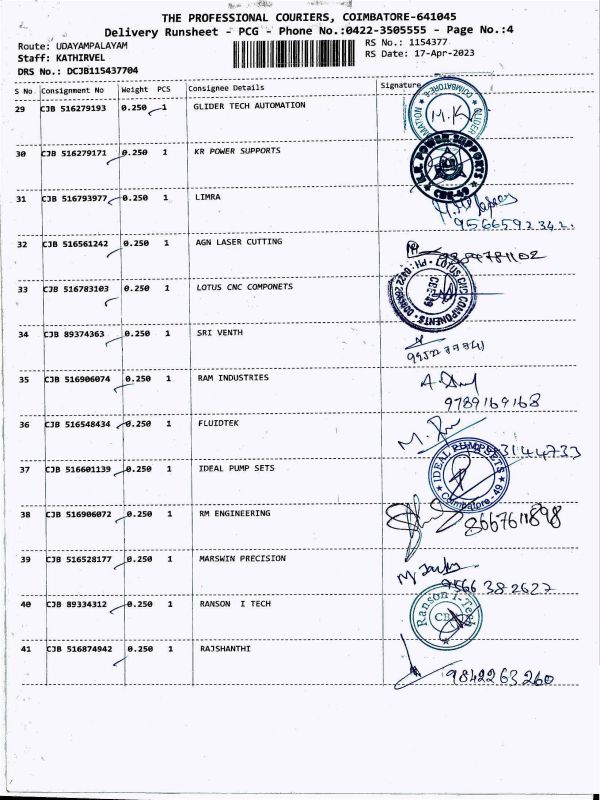 THE PROFESSIONAL COURIERS, COIMBATORE-641045
Delivery Runsheet - PCG - Phone No.:0422-3505555 - Page No.:4
Route: UDAYAMPALAYAM
RS No.: 1154377
Staff: KATHIRVEL
RS Date: 17-Apr-2023
DRS No.: DCJB115437704
S No Consignment No Weight PCS Consignee Details Signature
29 CJB 516279193 0.250 1 GLIDER TECH AUTOMATION
30 CJB 516279171 0.250 1 KR POWER SUPPORTS
31 CJB 516793977 0.250 1 LIMRA
9566592342
32 CJB 516561242 0.250 1 AGN LASER CUTTING
33 CJB 516783103 0.250 1 LOTUS CNC COMPONETS
LOTUS CNC COMPONENTS
34 CJB 89374363 0.250 1 SRI VENTH
35 CJB 516906074 0.250 1 RAM INDUSTRIES
9789169168
36 CJB 516548434 0.250 1 FLUIDTEK
37 CJB 516601139 0.250 1 IDEAL PUMP SETS
IDEAL PUMPSETS
Coimbatore - 49
38 CJB 516906072 0.250 1 RM ENGINEERING
39 CJB 516528177 0.250 1 MARSWIN PRECISION
9566382627
40 CJB 89334312 0.250 1 RANSON I TECH
Ranson I-Tech
41 CJB 516874942 0.250 1 RAJSHANTHI
9842263260